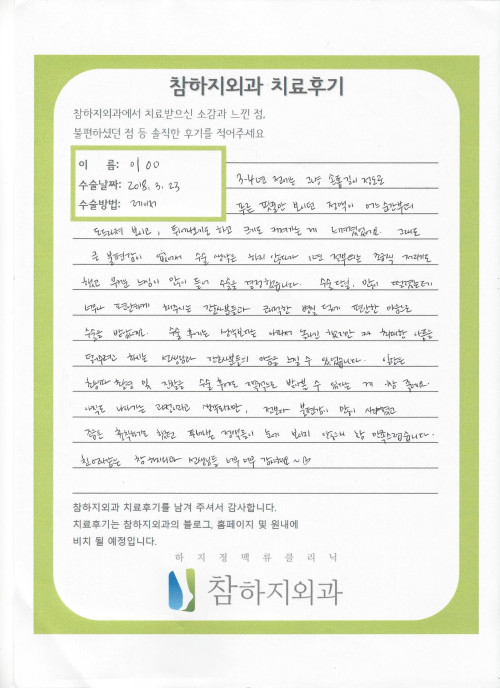 참하지외과 치료후기
참하지외과에서 치료받으신 소감과 느낀 점,
불편하셨던 점 등 솔직한 후기를 적어주세요
이 름: 이OO
수술날짜: 2018. 3. 23
수술방법: 레이저
3-4년 전에는 그냥 손톱길이 정도로
푸른 핏줄만 보이던 정맥이 어느순간부터
도드라져 보이고, 튀어나오기도 하고 느껴졌었어요. 그래도
큰 불편감이 없어서 수술 생각은 하지 않다가 1년 전부터는 조금씩 저리기도
했고 무거운 느낌이 많이 들어 수술을 결정했습니다. 수술 당일, 많이 떨렸는데
너무나 편안하게 해주시는 간호사분들과 쾌적한 병실 덕에 편안한 마음으로
수술을 받았네요. 수술 후에는 생각보다는 아파서 하지만 최대한
하시는 선생님과 간호사분들의 마음을 느낄 수 있었습니다.
초음파 촬영 및 진찰을 수술 후에도 받아볼 수 있다는 게 참 좋네요.
아직도 나아가는 과정이라고 불편감이 많이 사라졌고
정맥들이 눈에 보이지 참 만족스럽습니다.
참하지외과 선생님들 너무 너무 감사해요~
참하지외과 치료후기를 남겨 주셔서 감사합니다.
치료후기는 참하지외과의 블로그, 홈페이지 및 원내에
비치 될 예정입니다.
하지정맥류클리닉
참하지외과